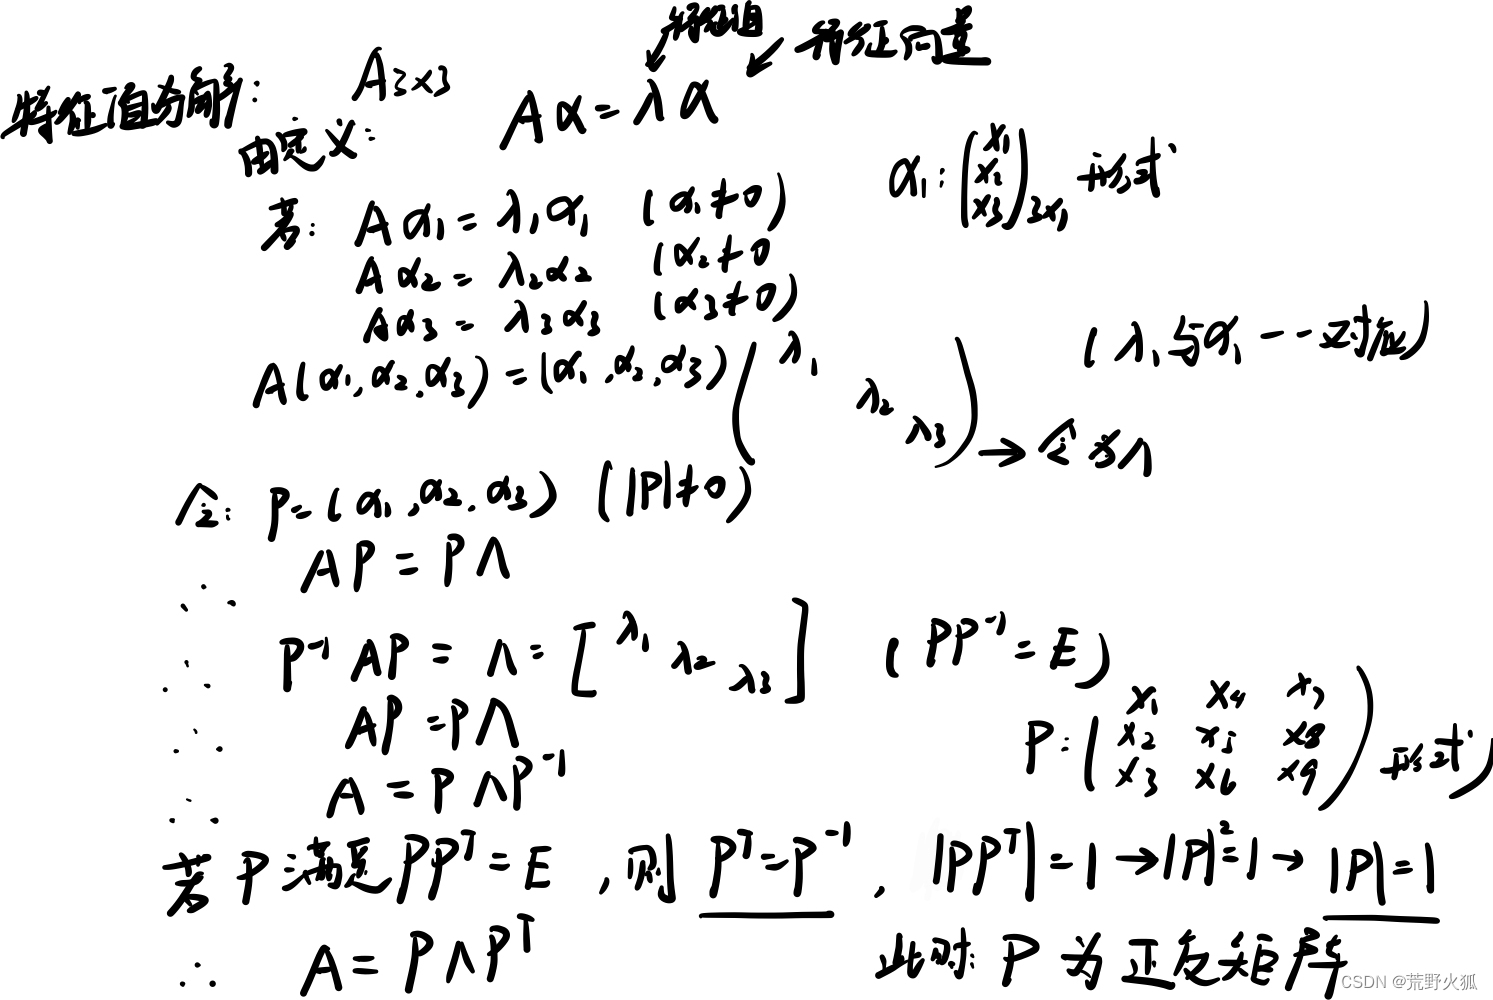 特征值 特征向量
特征值分解: A₃ₓ₃ Aα=λα
由定义:
α₁: (x₁ x₂ x₃)₃ₓ₁ 形式
若: Aα₁=λ₁α₁ (α₁≠0)
Aα₂=λ₂α₂ (α₂≠0
Aα₃=λ₃α₃ (α₃≠0)
(λ₁与α₁一一对应)
A(α₁,α₂,α₃)=(α₁,α₂,α₃)(λ₁ λ₂ λ₃)→令为Λ
令: P=(α₁,α₂,α₃) (|P|≠0)
∴ AP=PΛ
∴ P⁻¹AP=Λ=[λ₁ λ₂ λ₃] (PP⁻¹=E)
∴ AP=PΛ
P:(x₁ x₄ x₇
x₂ x₅ x₈
x₃ x₆ x₉) 形式)
∴ A=PΛP⁻¹
若P满足PPᵀ=E,则Pᵀ=P⁻¹,|PPᵀ|=1→|P|²=1→|P|=1
∴ A=PΛPᵀ 此时:P为正交矩阵
CSDN @荒野火狐